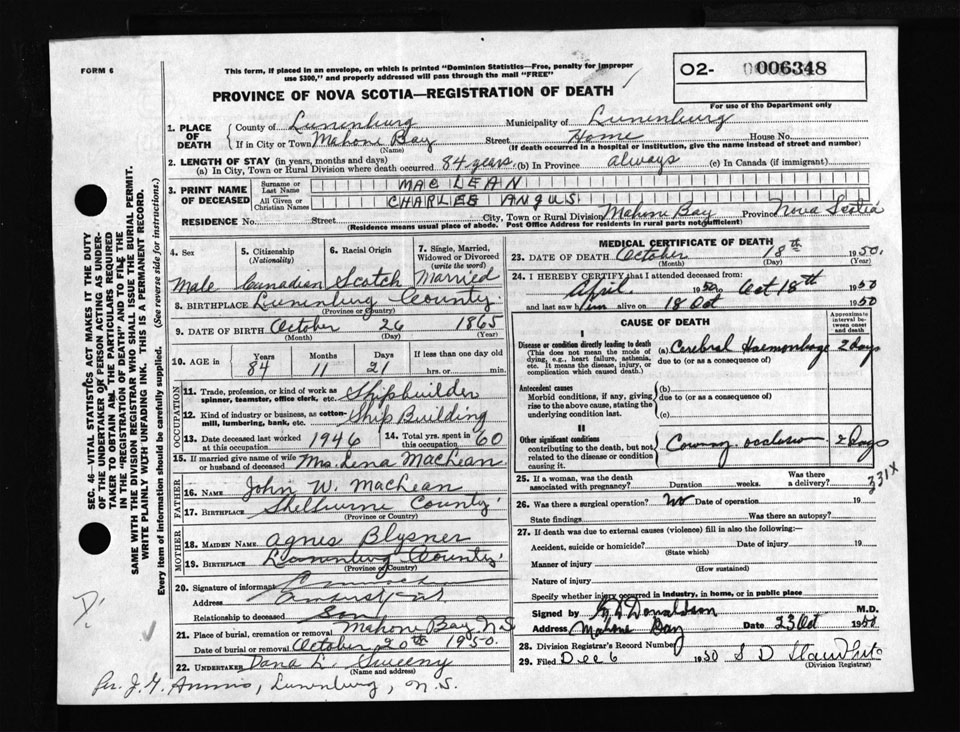 FORM 6
This form, if placed in an envelope, on which is printed "Dominion Statistics—Free, penalty for improper
use $300," and properly addressed will pass through the mail "FREE"
PROVINCE OF NOVA SCOTIA—REGISTRATION OF DEATH
O2- 006348
For use of the Department only
1. PLACE OF DEATH
County of Lunenburg Municipality of Lunenburg
If in City or Town Mahone Bay Street Home House No.
(Name) (If death occurred in a hospital or institution, give the name instead of street and number)
2. LENGTH OF STAY (in years, months and days)
(a) In City, Town or Rural Division where death occurred 84 years. (b) In Province always (c) In Canada (if immigrant)
3. PRINT NAME OF DECEASED
Surname or Last Name MAC LEAN
All Given or Christian Names CHARLES ANGUS
RESIDENCE No. Street City, Town or Rural Division Mahone Bay Province Nova Scotia
(Residence means usual place of abode. Post Office Address for residents in rural parts not sufficient)
4. Sex Male
5. Citizenship (Nationality) Canadian
6. Racial Origin Scotch
7. Single, Married, Widowed or Divorced (write the word) Married
8. BIRTHPLACE Lunenburg County
(Province or Country)
9. DATE OF BIRTH October 26 1865
(Month) (Day) (Year)
10. AGE in Years 84 Months 11 Days 21 If less than one day old hrs. or min.
OCCUPATION
11. Trade, profession, or kind of work as spinner, teamster, office clerk, etc. Shipbuilder
12. Kind of industry or business, as cotton-mill, lumbering, bank, etc. Ship Building
13. Date deceased last worked at this occupation 1946
14. Total yrs. spent in this occupation 60
15. If married give name of wife or husband of deceased Mrs. Lena MacLean
FATHER
16. NAME John W. MacLean
17. BIRTHPLACE Shelburne County
(Province or Country)
MOTHER
18. MAIDEN NAME Agnes
19. BIRTHPLACE Lunenburg County
(Province or Country)
20. Signature of informant
Address Amherst, N.S.
Relationship to deceased Son
21. Place of burial, cremation or removal Mahone Bay N.S
Date of burial or removal October 20th 1950.
22. UNDERTAKER Dana L. Sweeny
(Name and address)
Per. J. G. Lunenburg, N.S.
MEDICAL CERTIFICATE OF DEATH
23. DATE OF DEATH October 18th 1950.
(Month) (Day) (Year)
24. I HEREBY CERTIFY that I attended deceased from:
April 1950 to Oct 18th 1950
and last saw him alive on 18 Oct 1950
CAUSE OF DEATH
Approximate interval between onset and death
I
Disease or condition directly leading to death
(This does not mean the mode of dying, e.g., heart failure, asthenia, etc. It means the disease, injury, or complication which caused death.)
(a) Cerebral Haemorrhage 2 days
due to (or as a consequence of)
Antecedent causes
Morbid conditions, if any, giving rise to the above cause, stating the underlying condition last.
(b)
due to (or as a consequence of)
(c)
II
Other significant conditions contributing to the death, but not related to the disease or condition causing it.
Coronary occlusion 2 days
25. If a woman, was the death associated with pregnancy? Duration weeks. Was there a delivery?
331X
26. Was there a surgical operation? No Date of operation 19
State findings Was there an autopsy?
27. If death was due to external causes (violence) fill in also the following:—
Accident, suicide or homicide? Date of injury 19
(State which)
Manner of injury
(How sustained)
Nature of injury
Specify whether injury occurred in industry, in home, or in public place
Signed by Donaldson M.D.
Address Mahone Bay Date 23 Oct 1950
28. Division Registrar's Record Number
29. Filed Dec 6 1950 S D
(Division Registrar)
SEC. 46—VITAL STATISTICS ACT MAKES IT THE DUTY
OF THE UNDERTAKER OR PERSON ACTING AS UNDER-
TAKER TO OBTAIN ALL THE PARTICULARS REQUIRED
IN THE "REGISTRATION OF DEATH" AND TO FILE THE
SAME WITH THE DIVISION REGISTRAR WHO SHALL ISSUE THE BURIAL PERMIT.
WRITE PLAINLY WITH UNFADING INK. THIS IS A PERMANENT RECORD.
Every item of information should be carefully supplied. (See reverse side for instructions.)